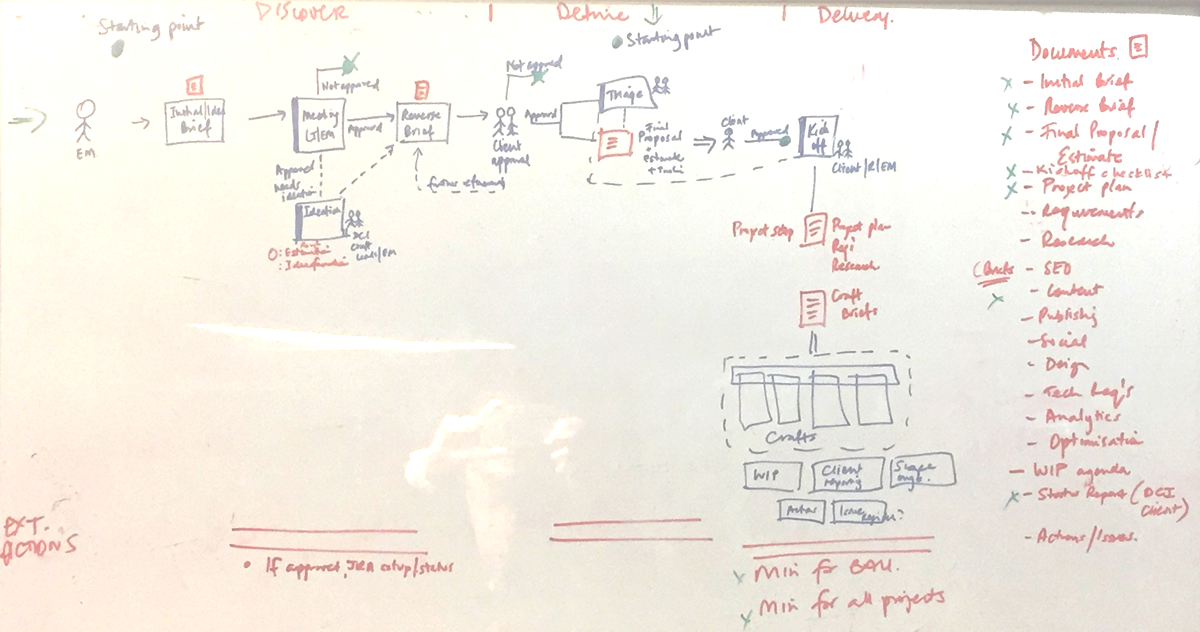 DISCOVER
Define
Delivery.
Starting point
Starting point
EM
Initial/Idea
Brief
Not approved
Meeting
Approved
Approved
Needs
ideation
Ideation
DCI
Craft
Leads/EM
Reverse
Brief
Not approved
Client
approval
Approved
Triage
Final
Proposal
+ estimate
Client
Approved
Kick
off
Client/R/EM
Project setup
Project plan
Research
Craft
Briefs
Crafts
WIP
Client
reporting
Scope
Documents
- Initial Brief
- Reverse Brief
- Final Proposal/
Estimate
- Kickoff checklist
- Project plan
- Requirements
- Research
(Briefs - SEO
- Content
- Publishing
- Social
- Design
- Tech Req's
- Analytics
- Optimisation
- WIP agenda
- Status Report (DCI
Client)
- Actions/Issues.
EXT.
ACTIONS
• If approved, JIRA setup/status
x Min for BAU.
x Min for all projects